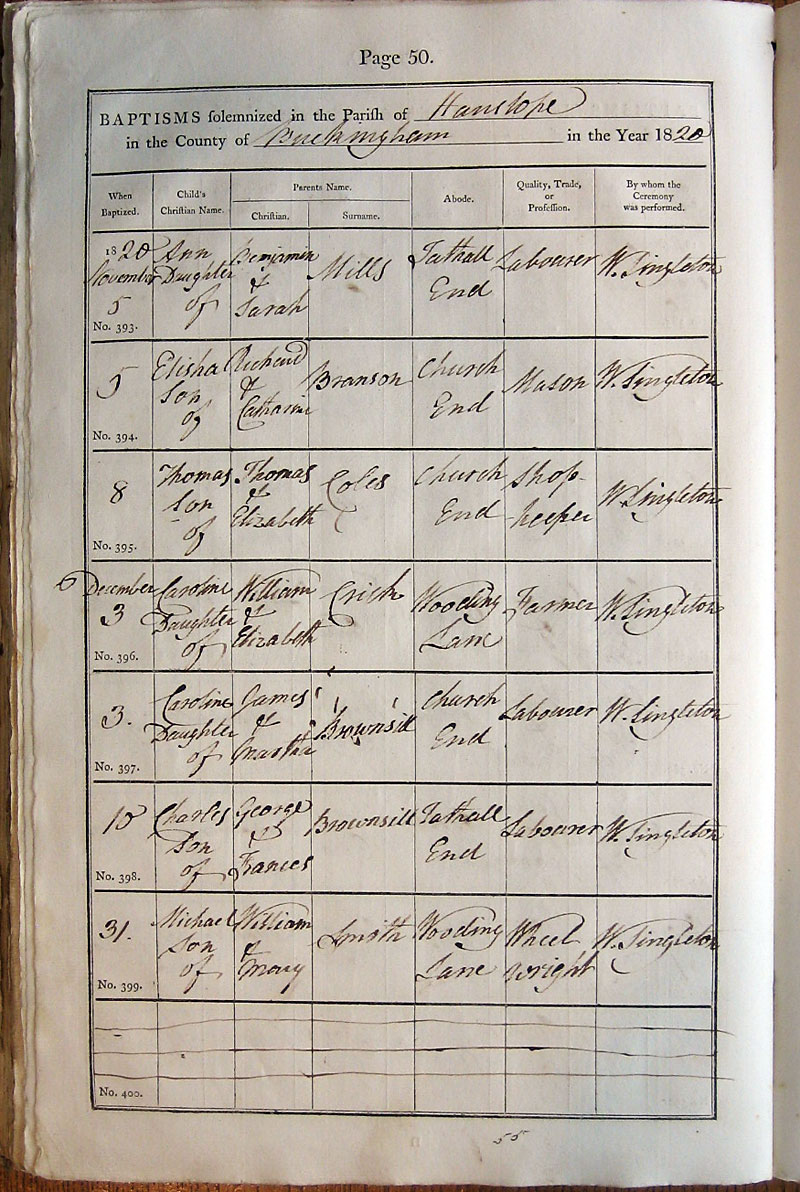 Page 50.
BAPTISMS solemnized in the Parish of Hanslope
in the County of Buckingham in the Year 1820
When Baptized. Child's Christian Name. Parents Name. Christian. Surname. Abode. Quality, Trade, or Profession. By whom the Ceremony was performed.
1820 Ann Benjamin Mills Tathall Labourer W. Singleton
November Daughter & End
5 of Sarah
No. 393.
5 Elisha Richard Branson Church Mason W. Singleton
Son & End
of Catharine
No. 394.
8 Thomas Thomas Coles Church Shop- W. Singleton
Son & End keeper
of Elizabeth
No. 395.
December Caroline William Crish Wooding Farmer W. Singleton
3 Daughter & Lane
of Elizabeth
No. 396.
3. Caroline James Brownsill Church Labourer W. Singleton
Daughter & End
of Martha
No. 397.
10 Charles George Brownsill Tathall Labourer W. Singleton
Son & End
of Frances
No. 398.
31. Michael William Smith Wooding Wheel W. Singleton
Son & Lane wright
of Mary
No. 399.
No. 400.
55